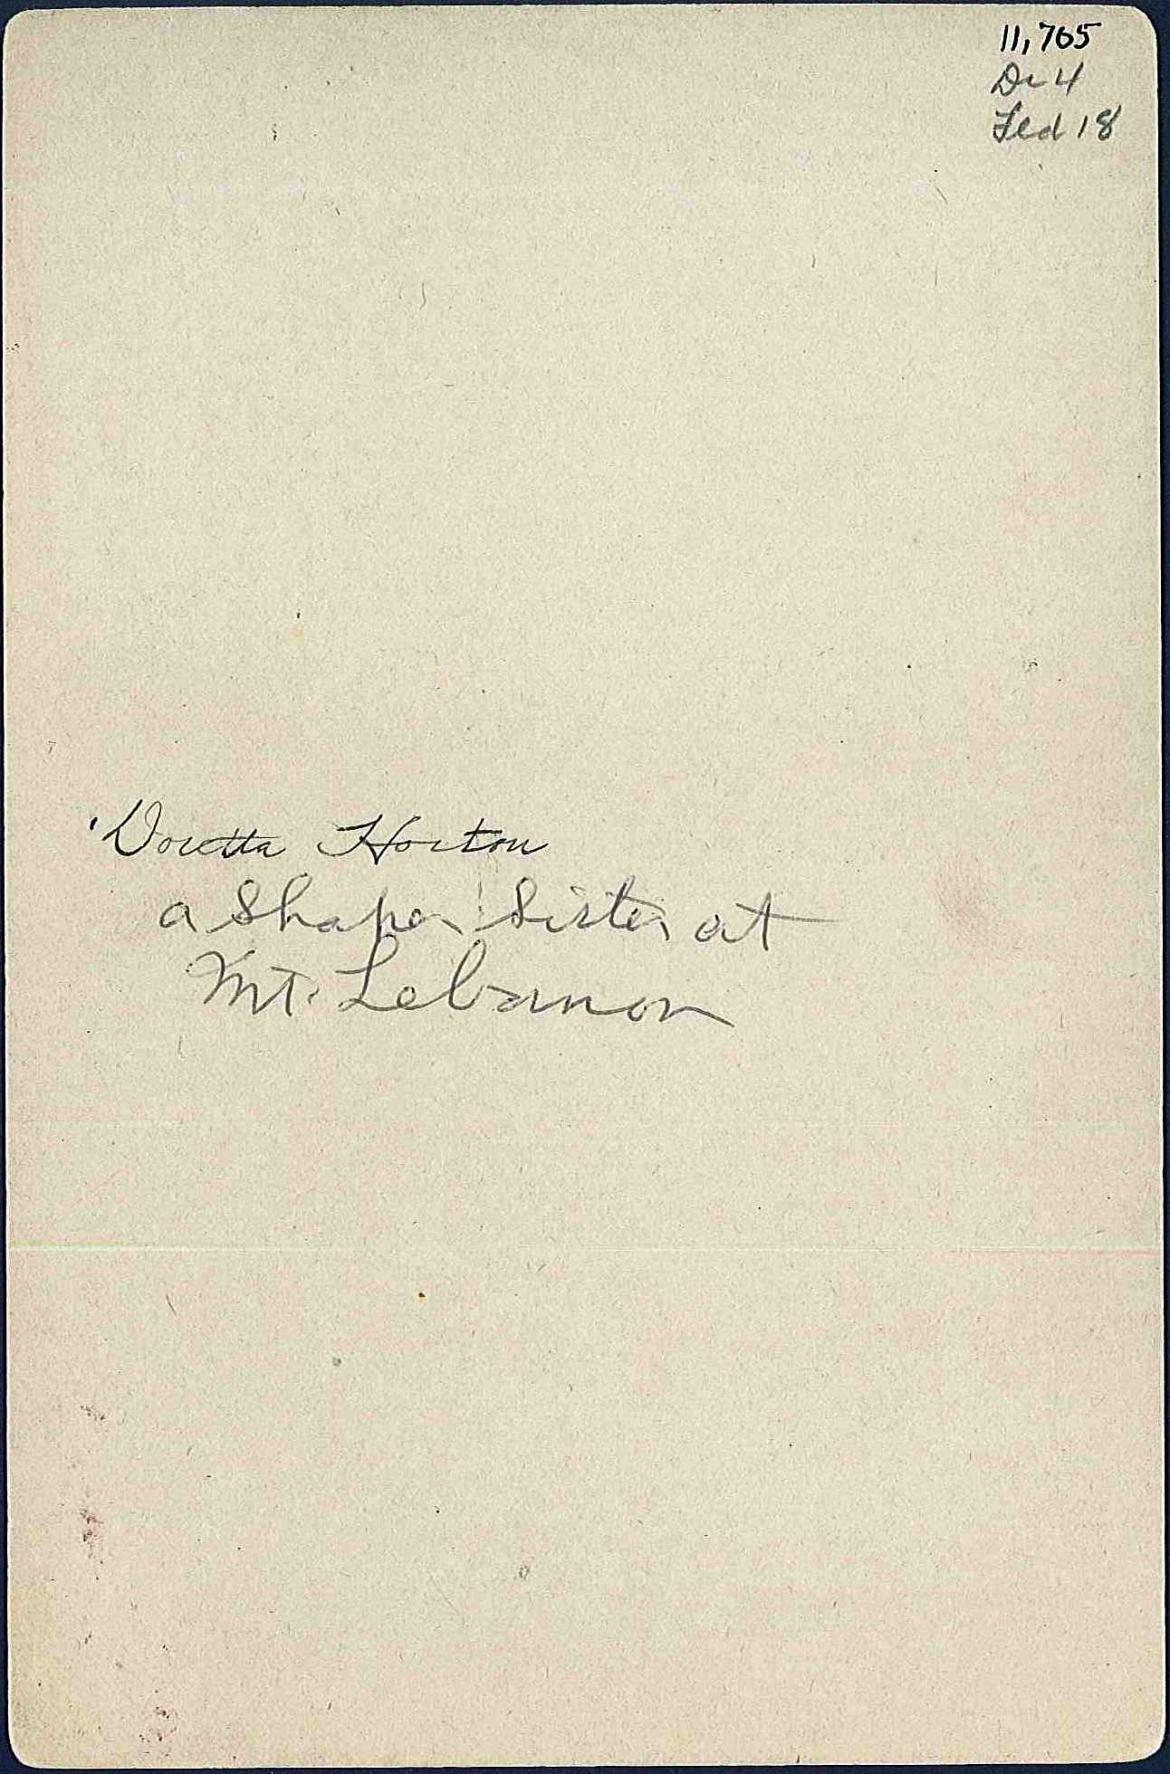 11,765
Dr 4
Fld 18
Doretta Horton
a Shaker Sister at
Mt. Lebanon